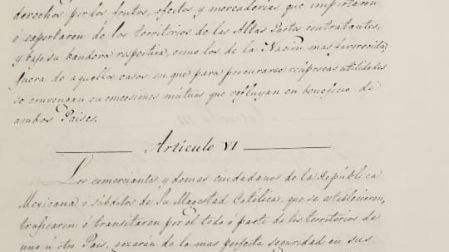 derechos por los frutos, efectos y mercaderias que importaren
ó esportaren de los territorios de las Altas Partes contratantes,
y bajo su bandera respectiva, como los de la Nacion mas favorecida,
fuera de aquellos casos en que para procurarse reciprocas utilidades
se convengan en concesiones mútuas que refluyan en beneficio de
ambos Paises.
Articulo VI
Los comerciantes y demas ciudadanos de la República
Mexicana ó súbditos de Su Magestad Católica, que se establecieren,
traficaren ó transitaren por el todo ó parte de los territorios de
uno u otro Pais, gozarán de la mas perfecta seguridad en sus